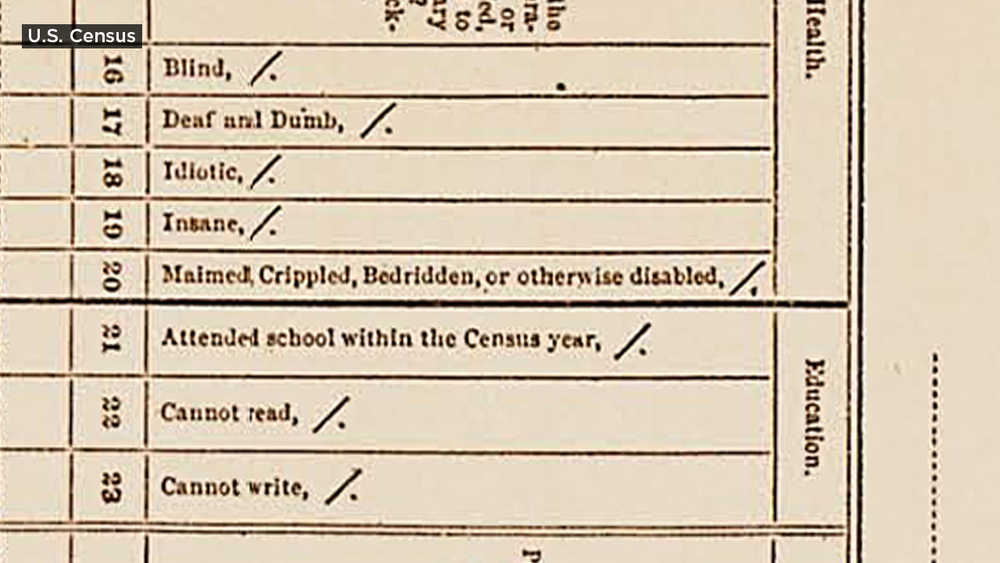 U.S. Census
16 Blind, /.
17 Deaf and Dumb, /.
18 Idiotic, /.
19 Insane, /.
20 Maimed, Crippled, Bedridden, or otherwise disabled, /.
Health.
21 Attended school within the Census year, /.
22 Cannot read, /.
23 Cannot write, /.
Education.